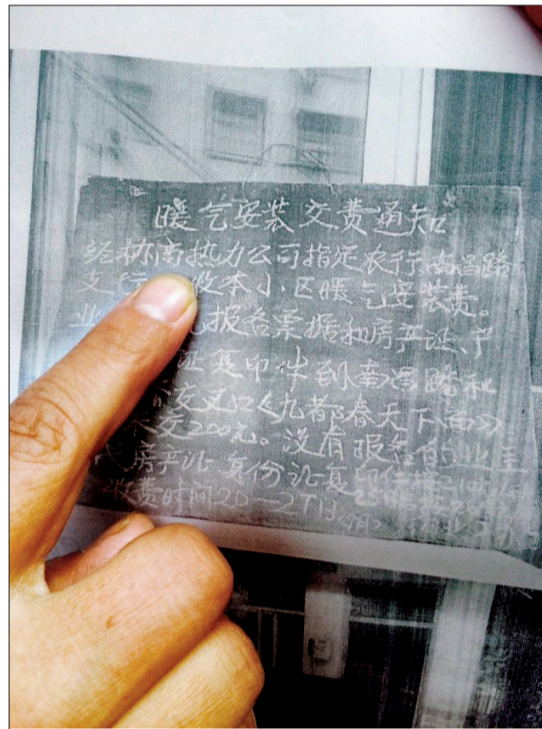 暖气安装交费通知
经协商热力公司指定农行南昌路
支行 收本小区暖气安装费。
业 报名票据和房产证、产
证复印件到南昌路和
交叉口《九都春天下面》
交200元。没有报名的业主
房产证身份证复印件
收费时间20—27日